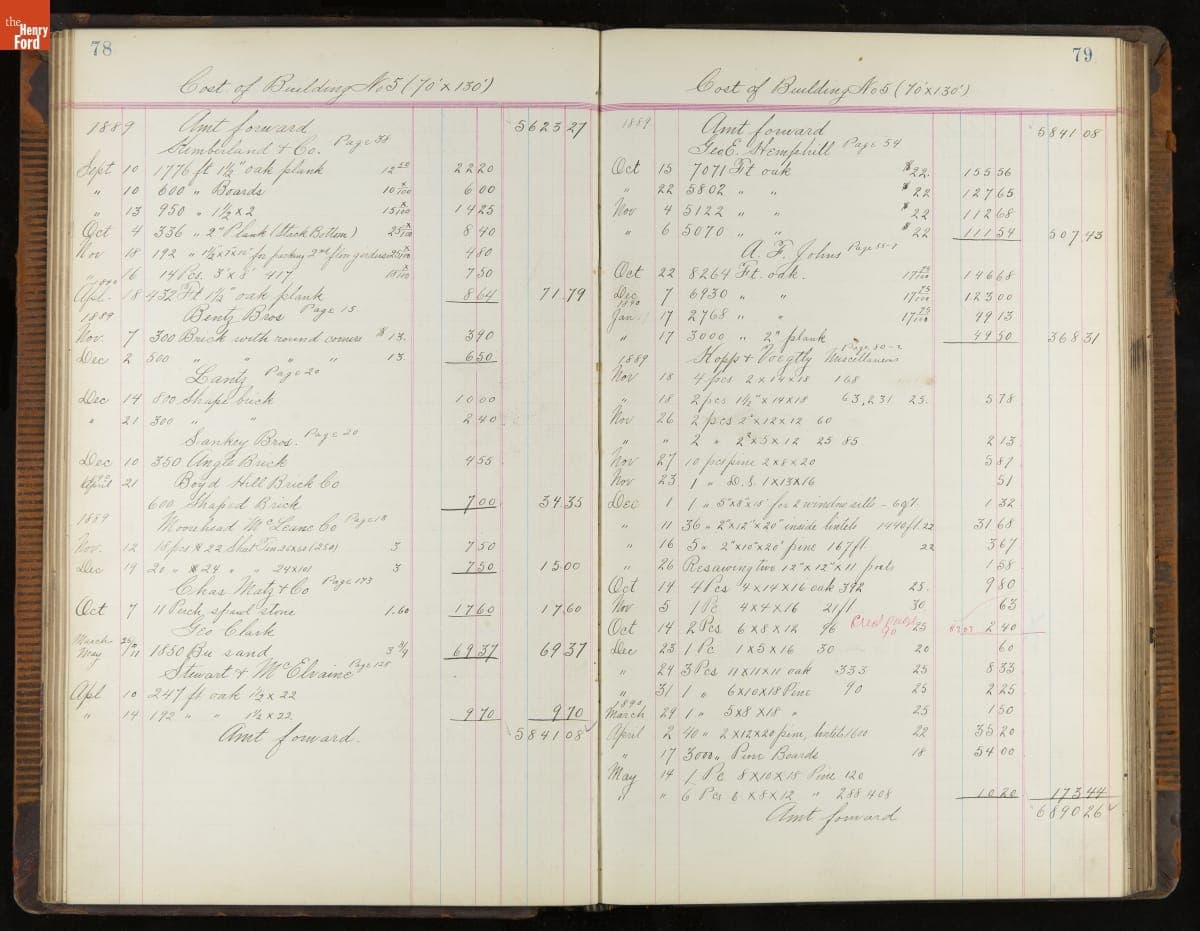 the Henry Ford
78
Cost of Building No 5 (70' x 130')
1889 Amt forward 5623 27
& Co. Page 38
Sept 10 1776 ft 1½" oak plank 12 50 22 20
" 10 600 " Boards 10 x/100 6 00
" 13 950 " 1½ x 2 15 x/100 14 25
Oct 4 336 " 2" Plank (Stack Bottom) 25 x/100 8 40
Nov 18 192 " for packing 2nd floor girders 25 x/100 4 80
" 16 14 Pcs. 3" x 8" 417 18 x/100 7 50
Apl. 18 432 Ft 1½" oak plank 8 64 71.79
1889 Bentz Bros Page 15
Nov. 7 300 Brick with round corners $ 13. 3 90
Dec 2 500 " " " " 13. 6 50
Lantz Page 20
Dec 14 800 Shape brick 10 00
" 21 300 " " 2 40
Sankey Bros. Page 20
Dec 10 350 Angle Brick 4 55
April 21 Boyd Hill Brick Co
600 Shaped Brick 7 00 34.35
1889 Moorhead McCleane Co Page 18
Nov. 12 18 pcs # 22 (250) 3 7 50
Dec 19 20 " # 24 " " 24x101 3 7 50 15 00
Chas Matz & Co Page 173
Oct 7 11 Perch spawl stone 1.60 17 60 17 60
Geo Clark
March 25/
May 7/11 1850 Bu sand 3 3/4 69 37 69 37
Stewart & McElvaine Page 128
Apl 10 247 ft oak 1½ x 22
" 14 192 " " 1½ x 22 9 70 9 70
Amt forward. 5841 08
79
Cost of Building No 5 (70' x 130')
1889 Amt forward 5841 08
Geo E. Hemphill Page 54
Oct 15 7071 Ft oak $ 22. 155 56
" 22 5802 " " $ 22 127 65
Nov 4 5122 " " $ 22 112 68
" 6 5070 " " $ 22 111 54 507.43
A. F. Johns Page 55-1
Oct 22 8264 Ft. oak. 17 75/100 146 68
Dec 7 6930 " " 17 75/100 123 00
1890
Jan. 17 2768 " " 17 75/100 49 13
" 17 3000 " 2" plank 49 50 368 31
1889 Hopp & Voegtly Miscellaneous Page 80-2
Nov 18 4 pcs 2 x 14 x 18 168
" 18 2 pcs 1½" x 14 x 18 63, 231 25. 5 78
Nov 26 2 pcs 2" x 12 x 12 60
" " 2 " 2" x 5 x 12 25 85 2 13
Nov 27 10 pcs pine 2 x 8 x 20 5 87
Nov 23 1 " D.S. 1 x 13 x 16 51
Dec 1 1 " 5" x 8" x 15' for 2 window sills - 1 32
" 11 36 " 2" x 12" x 20" inside lintels 1440 ft 22 31 68
" 16 5 " 2" x 10" x 20' pine 167 ft. 22 3 67
" 26 Resawing two 12" x 12" x 11 posts 1 58
Oct 14 4 Pcs 4 x 14 x 16 oak 392 25. 9 80
Nov 5 1 Pc 4 x 4 x 16 21 ft 30 63
Oct 14 2 Pcs 6 x 8 x 12 96 25 2 40
Dec 23 1 Pc 1 x 5 x 16 30 20 60
" 24 3 Pcs 11 x 11 x 11 oak 333 25 8 33
" 31 1 " 6 x 10 x 18 Pine 90 25 2 25
1890
March 29 1 " 5 x 8 x 18 " 25 1 50
April 2 40 " 2 x 12 x 20 pine, lintels 1600 22 35 20
" 17 3000 " Pine Boards 18 54 00
May 14 1 Pc 8 x 10 x 18 Pine 120
" " 6 Pcs 6 x 8 x 12 " 288 408 10 20 173 44
Amt forward 6890 26